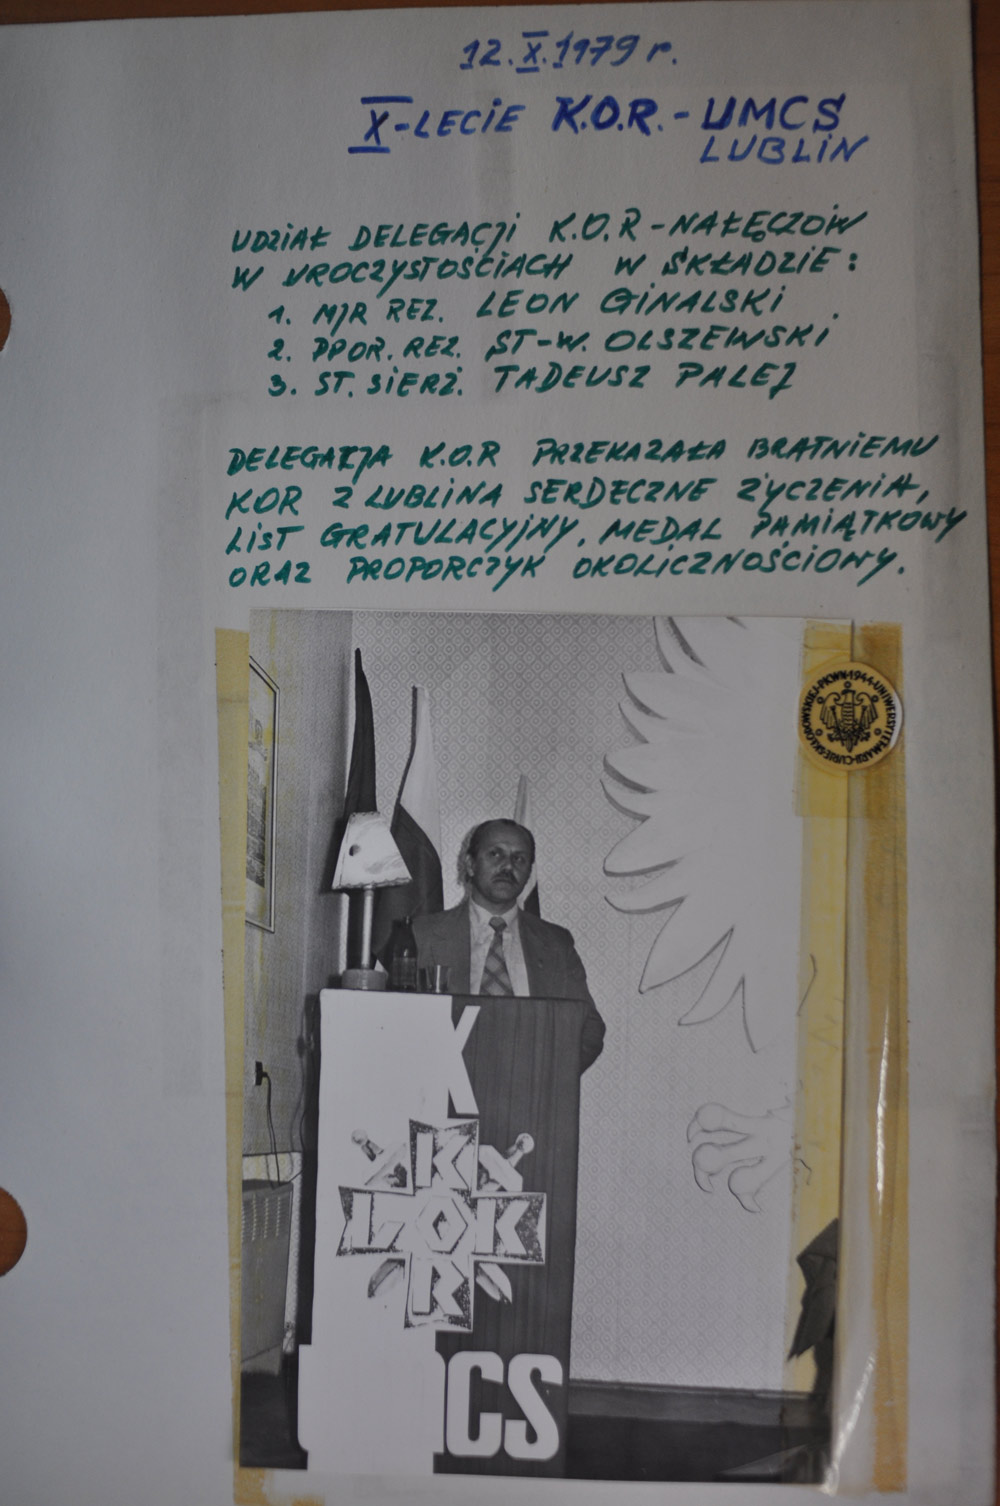 12.X.1979 r.
X-LECIE K.O.R.-UMCS
LUBLIN
UDZIAŁ DELEGACJI K.O.R-NAŁĘCZÓW
W UROCZYSTOŚCIACH W SKŁADZIE:
1. MJR REZ. LEON GINALSKI
2. PPOR. REZ. ST-W. OLSZEWSKI
3. ST. SIERŻ. TADEUSZ PALEJ
DELEGACJA K.O.R PRZEKAZAŁA BRATNIEMU
KOR Z LUBLINA SERDECZNE ŻYCZENIA,
LIST GRATULACYJNY, MEDAL PAMIĄTKOWY
ORAZ PROPORCZYK OKOLICZNOŚCIOWY.
PKWN·1944·UNIWERSYTET·MARII·CURIE-SKŁODOWSKIEJ
X
K
LOK
R
UMCS